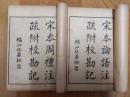 宋本論語注
疏附校勘記
宋本周禮注
疏附校勘記